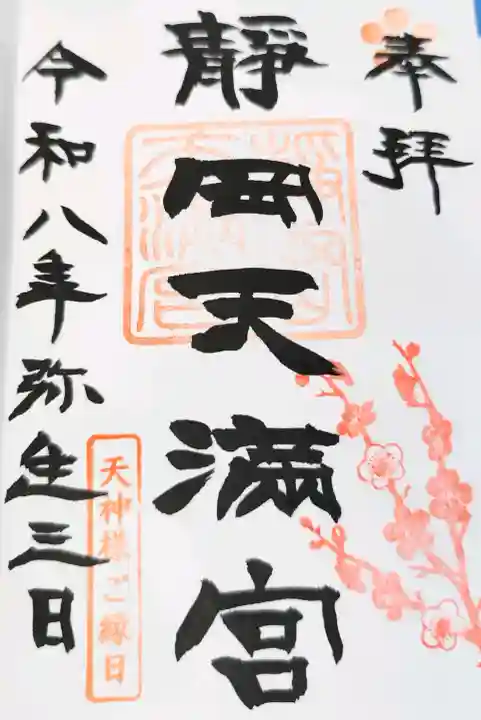 奉拝
靜岡天満宮
令和八年弥生三日
天神様ご縁日